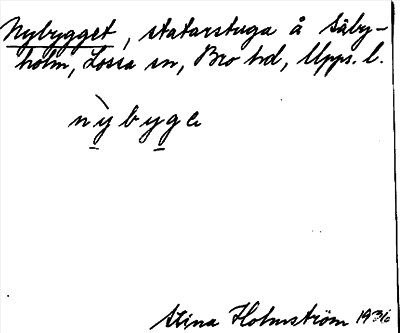 Nybygget, statarstuga å Säby-
holm, Låssa sn, Bro hd, Upps. l.
nỳbygε
Stina Holmström 1936